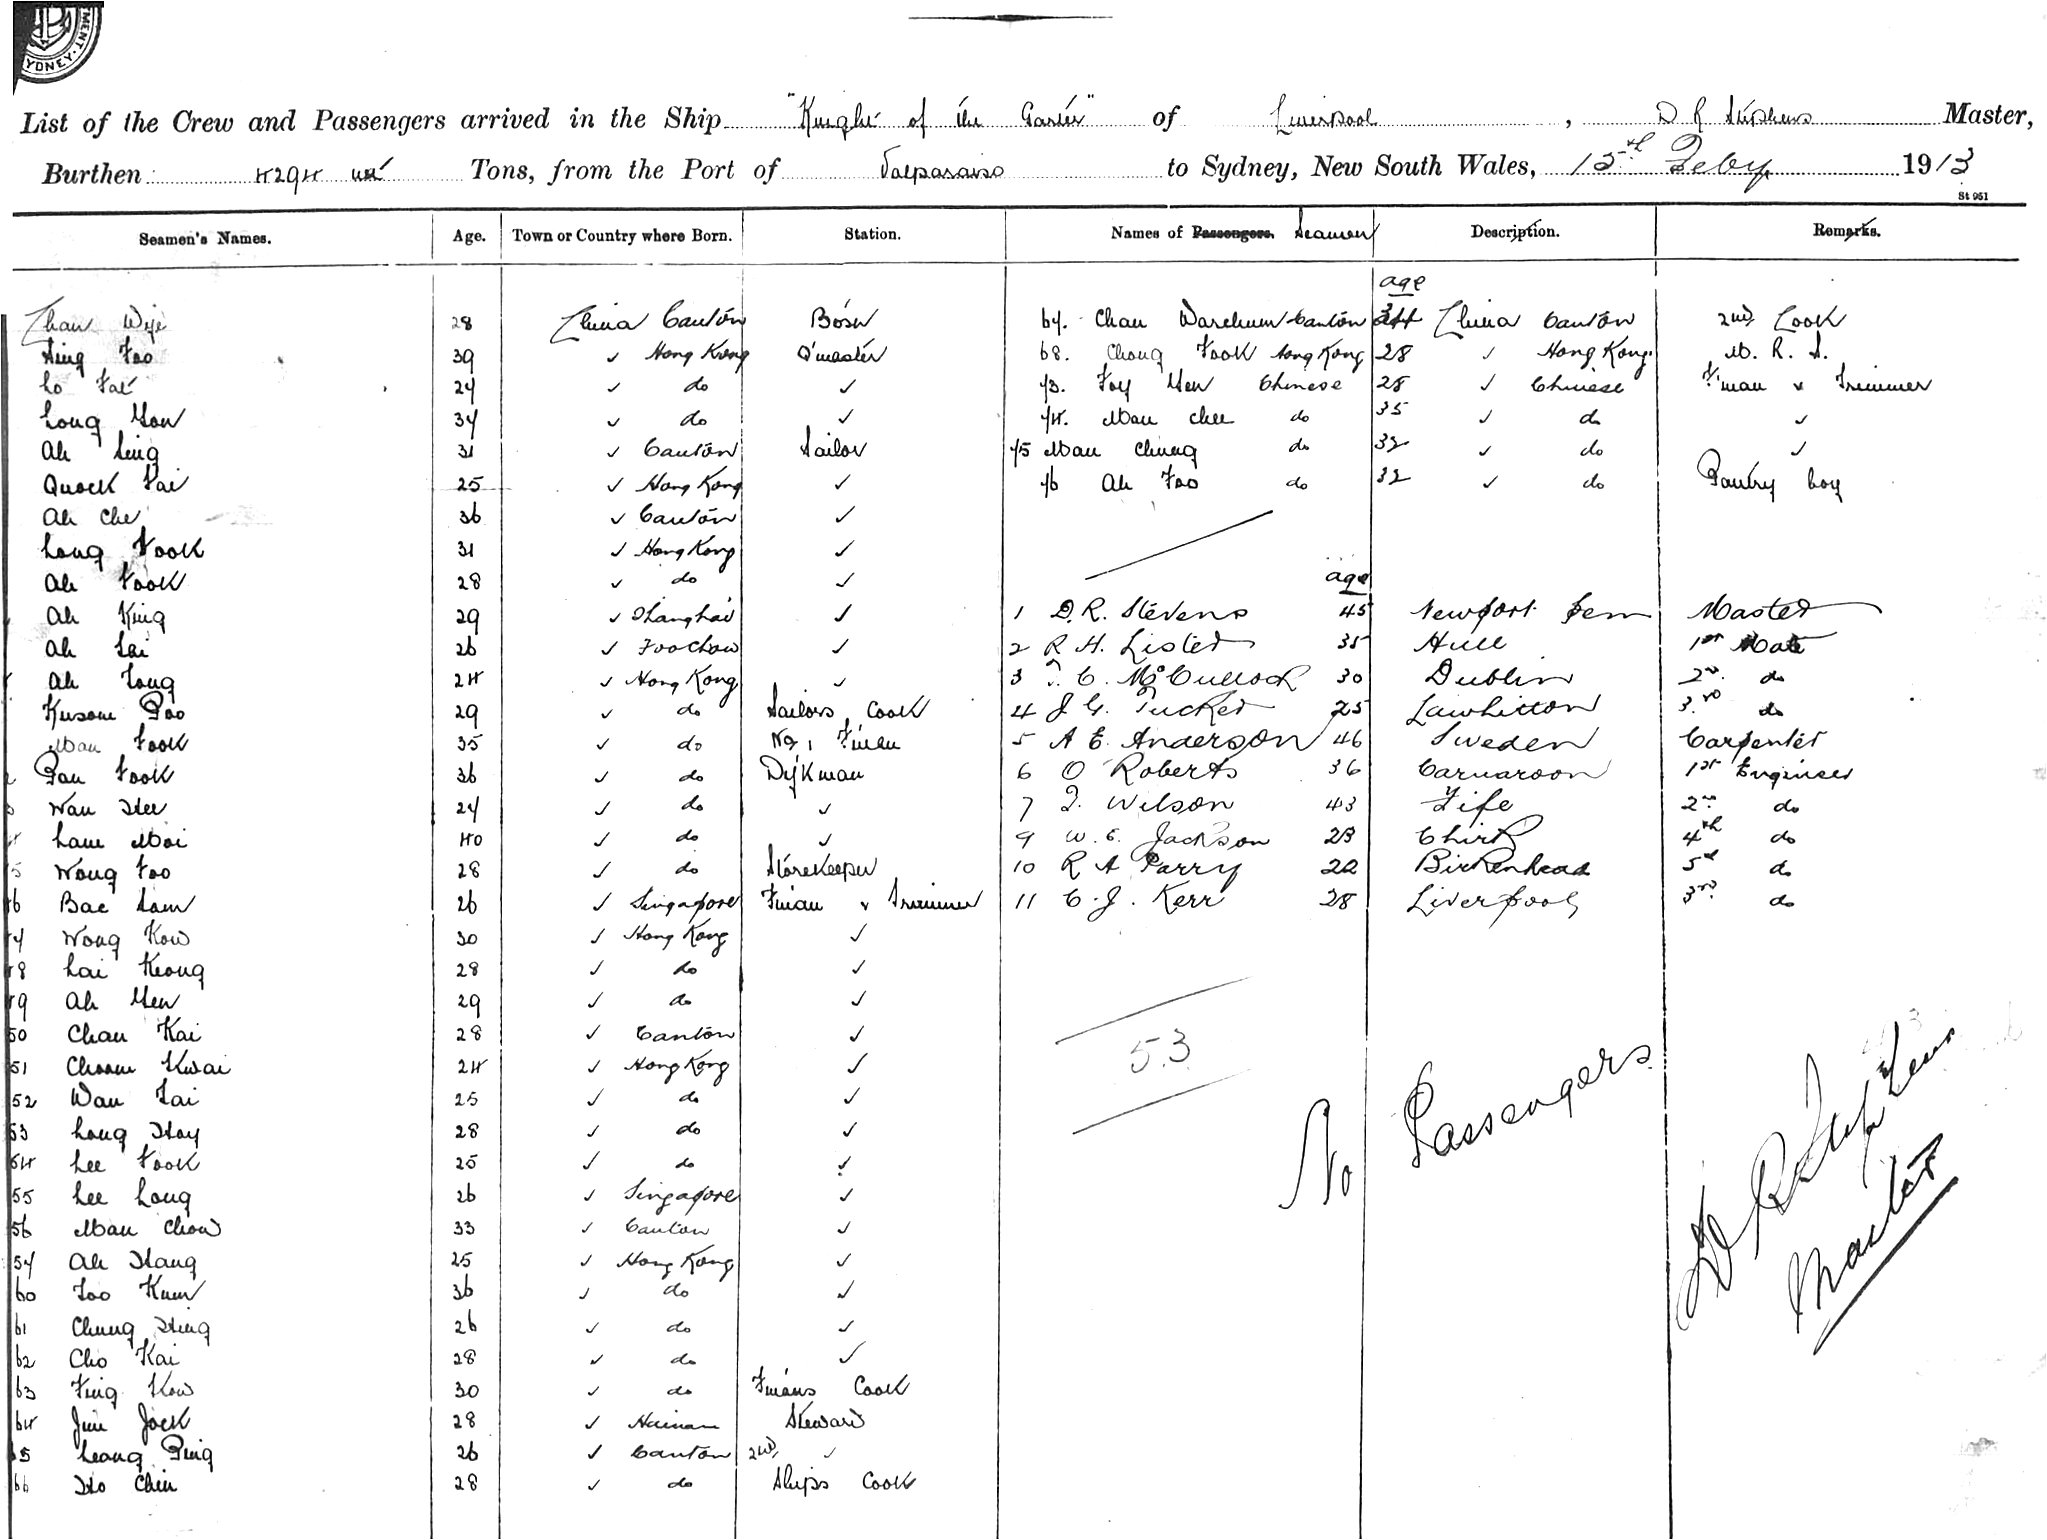 MENT. YDNEY
List of the Crew and Passengers arrived in the Ship "Knight of the Garter" of Liverpool, D R Stephens Master,
Burthen 4294 Tons, from the Port of Valparaiso to Sydney, New South Wales, 15th Feby 1913
St 951
Seamen's Names. Age. Town or Country where Born. Station. Names of Passengers. Seamen Description. Remarks.
age
Chan Wye 28 China Canton Bosn 67. Chan Warchum Canton 34 China Canton 2nd Cook
Hing Foo 39 ✓ Hong Kong Q'master 68. Chong Fook Hong Kong 28 ✓ Hong Kong. M. R. S.
Lo Fat 27 ✓ do ✓ 73. Foy Yen Chinese 28 ✓ Chinese F'man & Trimmer
Long Yow 37 ✓ do ✓ 74. Mau Chee do 35 ✓ do ✓
Ah Sing 31 ✓ Canton Sailor 75 Mau Chung do 32 ✓ do ✓
Quock Tai 25 ✓ Hong Kong ✓ 76 Ah Foo do 32 ✓ do Pantry boy
Ah Che 36 ✓ Canton ✓
Long Fook 31 ✓ Hong Kong ✓
Ah Fook 28 ✓ do ✓ age
Ah King 29 ✓ Shanghai ✓ 1 D.R. Stevens 45 Newport Pem Master
Ah Sai 26 ✓ Foochow ✓ 2 R H. Lister 35 Hull 1st Mate
Ah Tong 24 ✓ Hong Kong ✓ 3 C. McCulloch 30 Dublin 2nd. do
Kusom Poo 29 ✓ do Sailors Cook 4 J G. Tucker 25 Lawhitton 3.rd do
Mau Fook 35 ✓ do No 1 F'man 5 A E. Anderson 46 Sweden Carpenter
Pau Fook 36 ✓ do D'kman 6 O Roberts 36 Carnarvon 1st Engineer
Wau Hee 27 ✓ do ✓ 7 J. Wilson 43 Fife 2nd do
Lam Moi 40 ✓ do ✓ 9 W. E. Jackson 23 Chirk 4th do
Wong Foo 28 ✓ do Storekeeper 10 R A Parry 22 Birkenhead 5th do
46 Bae Sam 26 ✓ Singapore F'man & Trimmer 11 C. J. Kerr 28 Liverpool 3rd. do
47 Wong Kow 30 ✓ Hong Kong ✓
48 Lai Keong 28 ✓ do ✓
49 Ah Yen 29 ✓ do ✓
50 Chan Kai 28 ✓ Canton ✓
51 Choom Kwai 24 ✓ Hong Kong ✓
53
52 Wau Tai 25 ✓ do ✓
No Passengers
53 Long Hoy 28 ✓ do ✓
54 Lee Fook 25 ✓ do ✓
55 Lee Long 26 ✓ Singapore ✓
D R Stephens
Master
56 Mau Chow 33 ✓ Canton ✓
57 Ah Hang 25 ✓ Hong Kong ✓
60 Foo Kum 36 ✓ do ✓
61 Chung Hing 26 ✓ do ✓
62 Cho Kai 28 ✓ do ✓
63 Fing Kow 30 ✓ do F'mans Cook
64 Jim Jock 28 ✓ Hainam Steward
65 Leong Ping 26 ✓ Canton 2nd ✓
66 Ho Chin 28 ✓ do Ships Cook